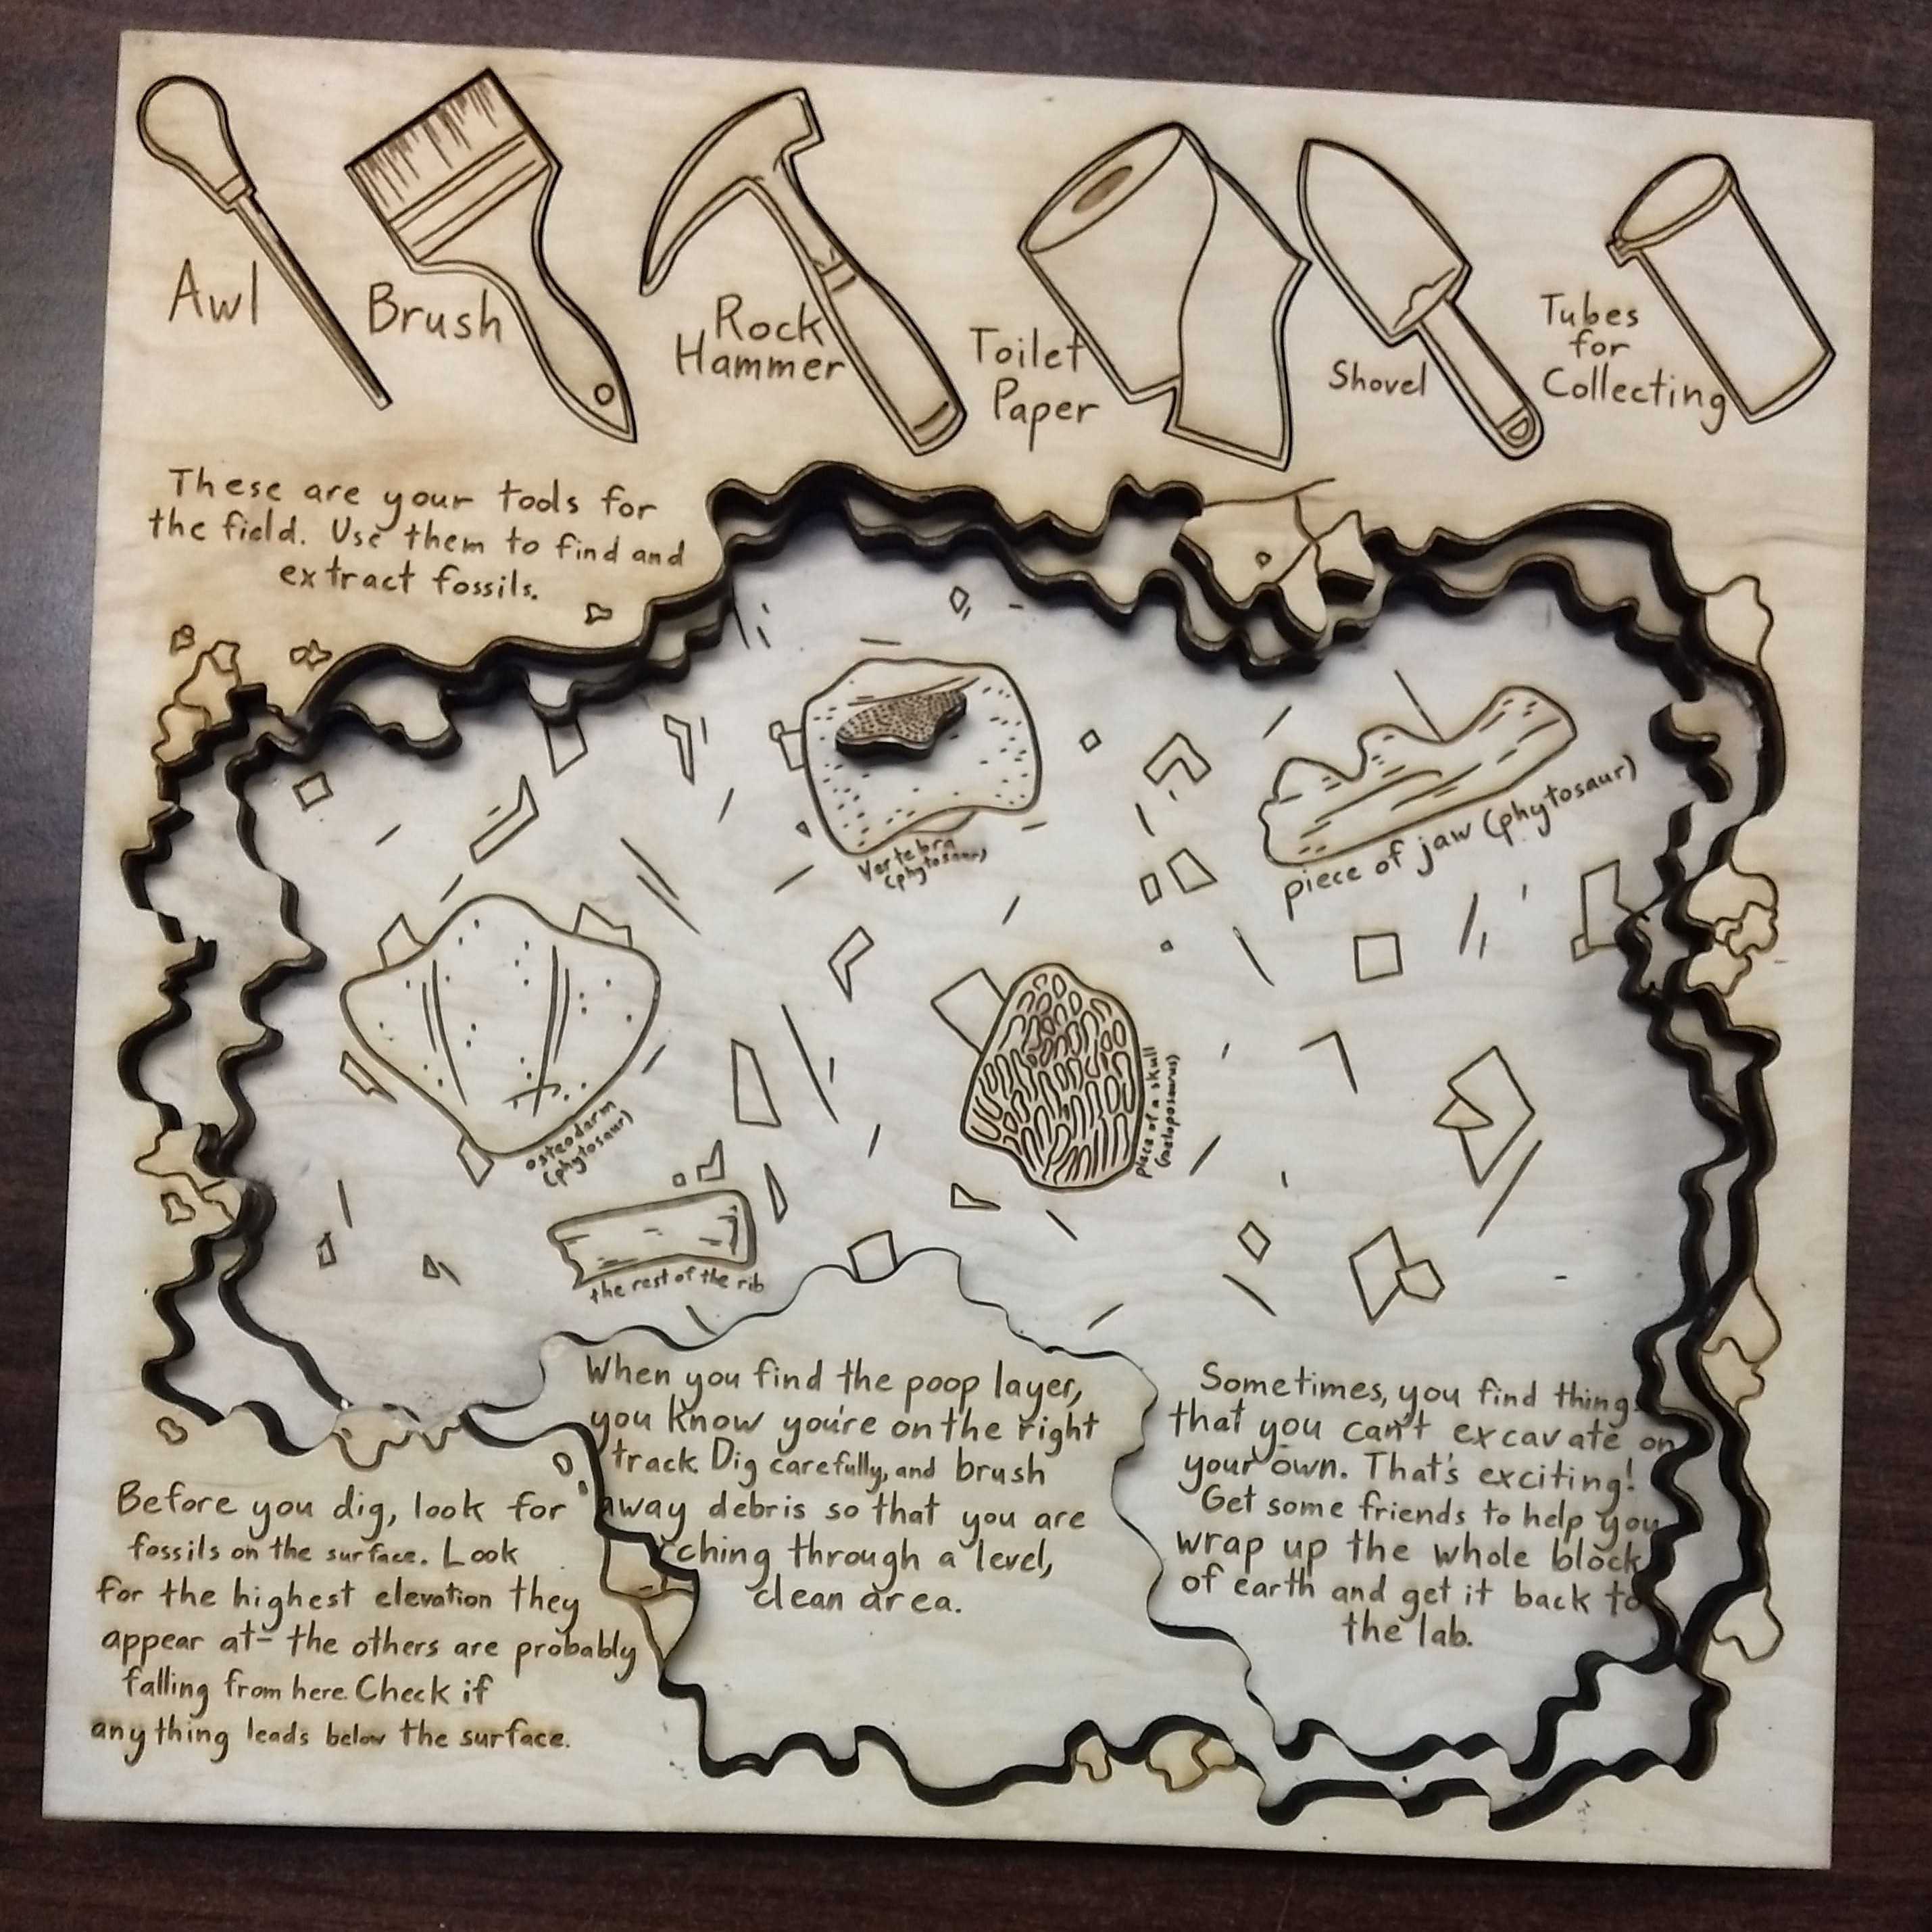 Awl
Brush
Rock
Hammer
Toilet
Paper
Shovel
Tubes
for
Collecting
These are your tools for
the field. Use them to find and
extract fossils.
Vertebra
(phytosaur)
piece of jaw (phytosaur)
osteodarm
(phytosaur)
piece of a skull
(metoposaurus)
the rest of the rib
When you find the poop layer,
you know you're on the right
track. Dig carefully, and brush
away debris so that you are
ching through a level,
clean area.
Sometimes, you find thing
that you can't excavate on
your own. That's exciting!
Get some friends to help you
wrap up the whole block
of earth and get it back to
the lab.
Before you dig, look for
fossils on the surface. Look
for the highest elevation they
appear at- the others are probably
falling from here. Check if
anything leads below the surface.